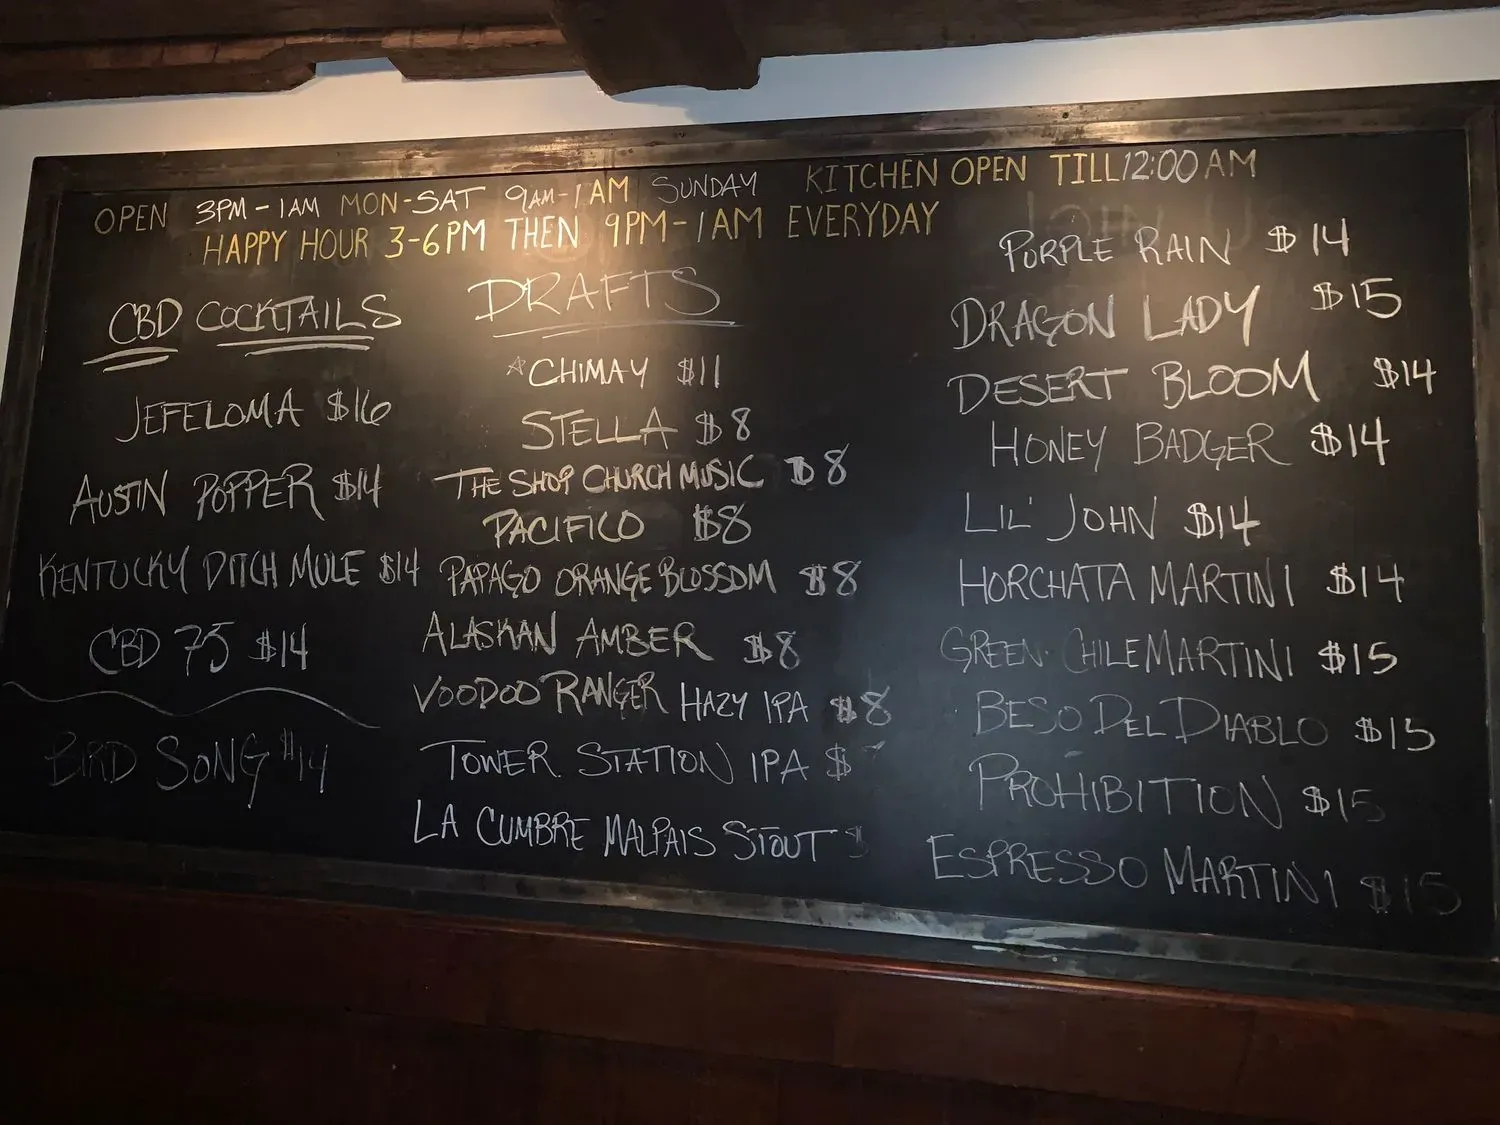 OPEN 3PM-1AM MON-SAT 9AM-1AM SUNDAY KITCHEN OPEN TILL 12:00 AM
HAPPY HOUR 3-6PM THEN 9PM-1AM EVERYDAY
CBD COCKTAILS
JEFELOMA $16
AUSTIN POPPER $14
KENTUCKY DITCH MULE $14
CBD 75 $14
BIRD SONG $14
DRAFTS
*CHIMAY $11
STELLA $8
THE SHOP CHURCH MUSIC $8
PACIFICO $8
PAPAGO ORANGE BLOSSOM $8
ALASKAN AMBER $8
VOODOO RANGER HAZY IPA $8
TOWER STATION IPA $
LA CUMBRE MALPAIS STOUT $
PURPLE RAIN $14
DRAGON LADY $15
DESERT BLOOM $14
HONEY BADGER $14
LIL' JOHN $14
HORCHATA MARTINI $14
GREEN CHILE MARTINI $15
BESO DEL DIABLO $15
PROHIBITION $15
ESPRESSO MARTINI $15